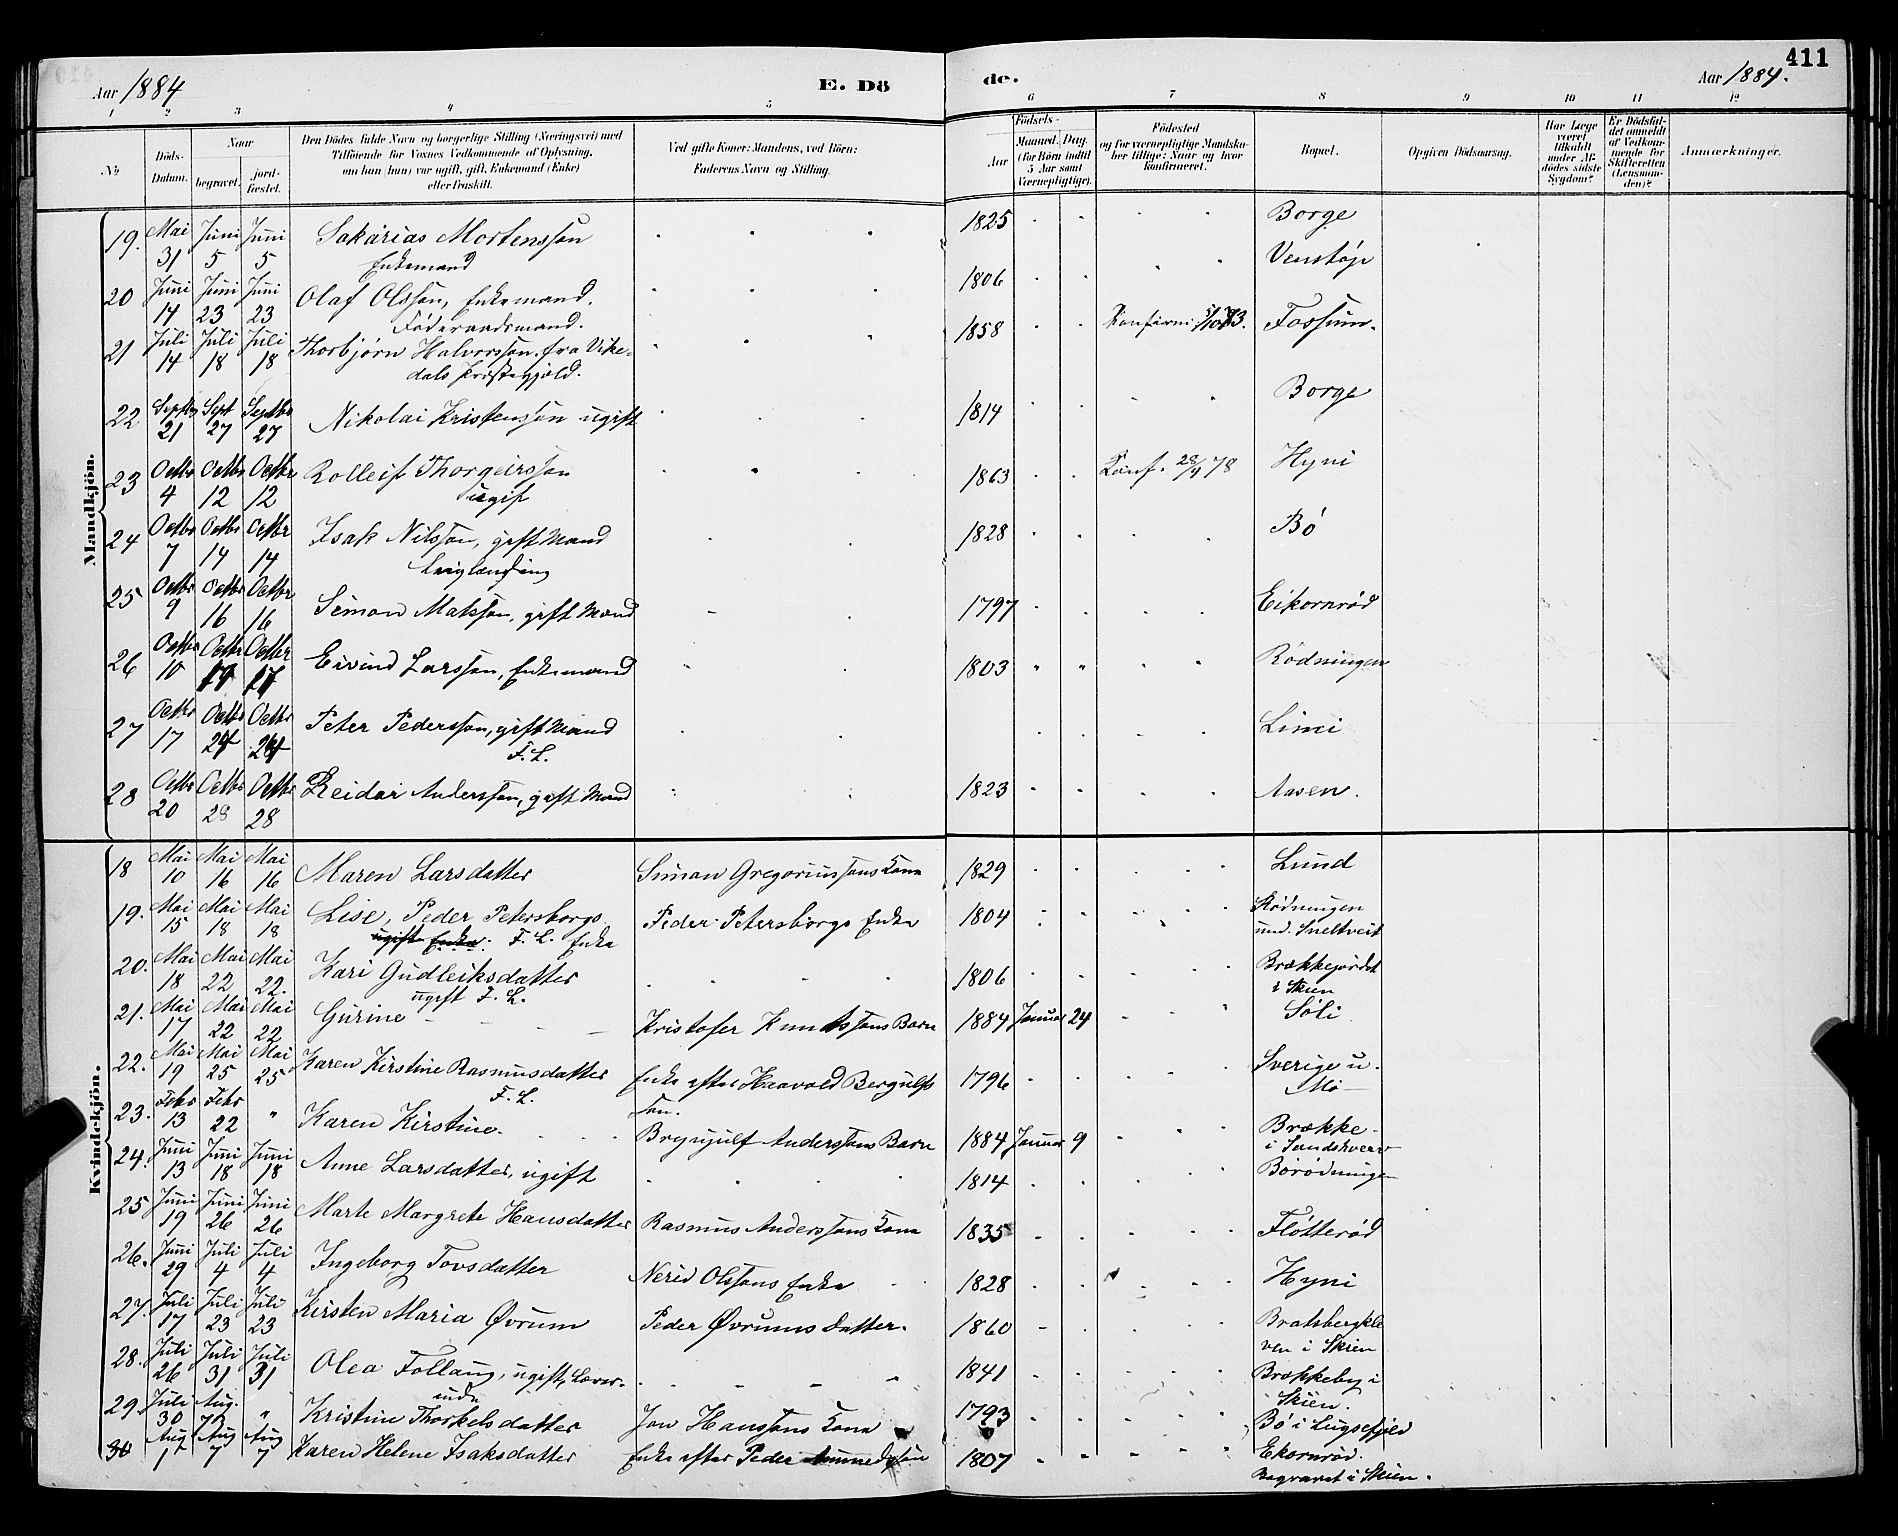 Aar 1884
E. Dö
de.
Aar 1884.
411
1 2 3 4 5 6 7 8 9 10 11 12
No
Döds-Datum.
Naar
begravet.
jord-fæstet.
Den Dödes fulde Navn og borgerlige Stilling (Næringsvei) med
Tilföiende for Voxnes Vedkommende af Oplysning,
om han (hun) var ugift, gift, Enkemand (Enke)
eller fraskilt.
Ved gifte Koner: Mandens, ved Börn:
Faderens Navn og Stilling.
Födsels-
Aar
Maaned. Dag.
(for Börn indtil
5 Aar samt
Værnepligtige).
Födested
og for værnepligtige Mandska-
ber tillige: Naar og hvor
konfirmeret.
Bopæl.
Opgiven Dödsaarsag.
Har Læge
været
tilkaldt
under Af-
dödes sidste
Sygdom?
Er Dödsfal-
det anmeldt
af Vedkom-
mende for
Skifteretten
(Lensman-
den)?
Anmærkninger.
Mandkjön.
19. Mai 31 Juni 5 Juni 5 Sakarias Mortenssøn Enkemand 1825 Borge
20 Juni 14 Juni 23 Juni 23 Olaf Olssøn, Enkemand. Föderaadsmand. 1806 Venstøp
21 Juli 14 Juli 18 Juli 18 Thorbjørn Halvorssøn fra Vike-
dals Præstegjæld. 1858 Konfirm. 5/10 73. Fossum.
22 Septbr 21 Sept 27 Septbr 27 Nikolai Kristenssøn ugift 1814 Borge
23 Octbr 4 Octbr 12 Octbr 12 Rolleif Thorgeirssøn ugift 1863 Konf. 28/4 78 Hyni
24 Octbr 7 Octbr 14 Octbr 14 Isak Nilssøn, gift Mand 1828 Bö
25 Octbr 9 Octbr 16 Octbr 16 Simon Matssøn, gift Mand 1797 Eikornrød
26 Octbr 10 Octbr 17 Octbr 17 Eivind Larssøn, Enkemand 1803 Rødningen
27 Octbr 17 Octbr 24 Octbr 24 Peter Pederssøn, gift Mand F. L. Limi
28 Octbr 20 Octbr 28 Octbr 28 Reidar Anderssøn, gift Mand 1823 Aasen.
Kvindekjön.
18 Mai 10 Mai 16 Mai 16 Maren Larsdatter Simon Gregoriussøns Kone 1829 Lund
19. Mai 15 Mai 18 Mai 18 Lise, Peder Petersborgs
ugift Enke. F. L. Enke Peder Petersborgs Enke 1804 Rødningen
und. Sneltveit
20. Mai 18 Mai 22 Mai 22. Kari Gudleiksdatter
ugift F. L. 1806 Brækkejordet
i Skien
21. Mai 17 Mai 22 Mai 22 Gurine Kristofer Knutssøns Barn 1884 Januar 24 Søli
22. Mai 19 Mai 25 Mai 25 Karen Kirstine Rasmusdatter
F. L. Enke efter Haavold Bergulfs
søn. 1796 Sverige u.
Mø
23. Febr 13 Febr 22 " Karen Kirstine. Brynjulf Anderssøns Barn 1884 Januar 9 Brække
i Sandsværv
24. Juni 13 Juni 18 Juni 18 Anne Larsdatter, ugift 1814 Børødningen
25 Juni 19 Juni 26 Juni 26 Marte Margrete Hansdatter Rasmus Anderssøns Kone 1835 Fløtterød
26. Juni 29 Juli 4 Juli 4 Ingeborg Tovsdatter Nerid Olssøns Enke 1828 Hyni
27. Juli 17 Juli 23 Juli 23 Kirsten Maria Øvrum Peder Øvrums Datter. 1860 Bratsbergkle
ven i Skien
28. Juli 26 Juli 31 Juli 31 Olea Follaug, ugift, Lever-
inde 1841 Brækkeby i
Skien.
29. Juli 30 Aug. " Kristine Thorkelsdatter Jon Hanssøns Kone 1793 Bö i Lugsefjeld
30 Aug 1 Aug 7 Aug 7 Karen Helene Isaksdatter Enke efter Peder 1807 Ekornrød.
Begravet i Skien.